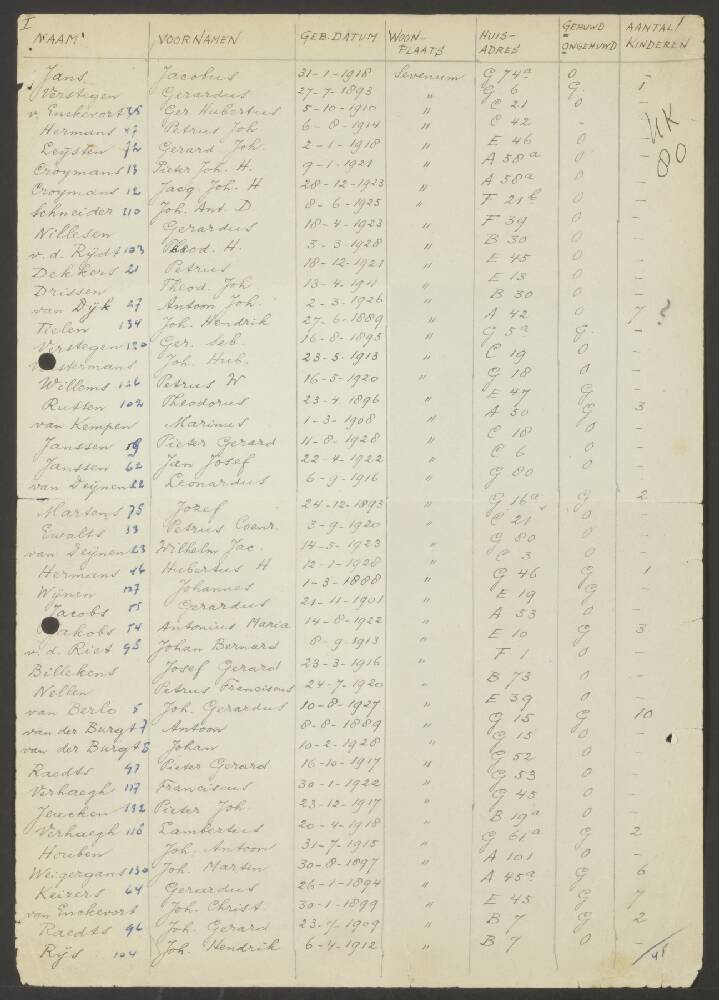 I
NAAM VOORNAMEN GEB. DATUM WOON-PLAATS HUIS-ADRES GEHUWD ONGEHUWD AANTAL KINDEREN
Jans Jacobus 31-1-1918 Sevenum G 74a O -
Verstegen Gerardus 27-7-1893 " G 6 G. 1
v. Enckevort 36 Ger Hubertus 5-10-1910 " C 21 O -
Hermans 47 Petrus Joh. 6-8-1914 " C 42 - -
Leijsten 72 Gerard Joh. 2-1-1918 " E 46 O -
Croymans 13 Pieter Joh. H. 9-1-1921 " A 58a O -
Croymans 12 Jacq. Joh. H 28-12-1923 " A 58a O -
Schneider 110 Joh. Ant. D. 8-6-1925 " F 21b O -
Nillesen Gerardus 18-4-1923 " F 39 O -
v. d. Rijdt 103 Theod. H. 3-3-1928 " B 30 O -
Dekkers 21 Petrus 18-12-1921 " E 45 O -
Drissen Theod. Joh. 13-4-1911 " E 13 O -
van Dijk 27 Antoon Joh. 2-3-1926 " B 30 O -
Tielen 134 Joh. Hendrik 27-6-1889 " A 42 O 7 ?
Verstegen 120 Ger. Seb. 16-8-1895 " G 5a G. -
Joh. Hub. 23-5-1913 " C 19 O -
Willems 126 Petrus W 16-5-1920 " G 18 O -
Rutten 102 Theodorus 23-4-1896 " E 47 G -
van Kempen Marinus 1-3-1908 " A 50 G 3
Janssen 59 Pieter Gerard 11-8-1928 " C 18 O -
Janssen 62 Jan Josef 22-4-1922 " C 6 O -
van Deijnen 22 Leonardus 6-9-1916 " G 80 O -
Martens 75 Jozef 24-12-1893 " G 16a G 2
Ewalts 33 Petrus Coenr. 3-9-1920 " C 21 O -
van Deijnen 23 Wilhelm Jac. 14-5-1923 " G 80 O -
Hermans 46 Hubertus H 12-1-1928 " C 3 O -
Wijnen 127 Johannes 1-3-1888 " G 46 G 1
Jacobs 55 Gerardus 21-11-1901 " E 19 G -
Jakobs 54 Antonius Maria 14-8-1922 " A 53 O -
v. d. Riet 98 Johan Bernard 8-9-1913 " E 10 G 3
Billekens Josef Gerard 23-3-1916 " F 1 O -
Nellen Petrus Franciscus 24-7-1920 " B 73 O -
van Berlo 5 Joh. Gerardus 10-8-1927 " E 39 O -
van der Burgt 7 Antoon 8-8-1889 " G 15 G 10
van der Burgt 8 Johan 10-2-1928 " G 15 O -
Raedts 97 Pieter Gerard 16-10-1917 " G 52 O -
Verhaegh 117 Franciscus 30-1-1922 " G 53 O -
Jeucken 132 Pieter Joh 23-12-1917 " G 45 O -
Verhaegh 116 Lambertus 20-4-1918 " B 19a O -
Houben Joh. Antoon 31-7-1915 " G 61a G 2
Weigergans 130 Joh. Martin 30-8-1897 " A 101 O -
Keizers 64 Gerardus 26-1-1894 " A 45a G 6
van Enckevort Joh. Christ. 30-1-1899 " E 45 G 7
Raedts 96 Joh. Gerard 23-7-1909 " B 7 G 2
Rijs 104 Joh. Hendrik 6-4-1912 " B 7 O -
80